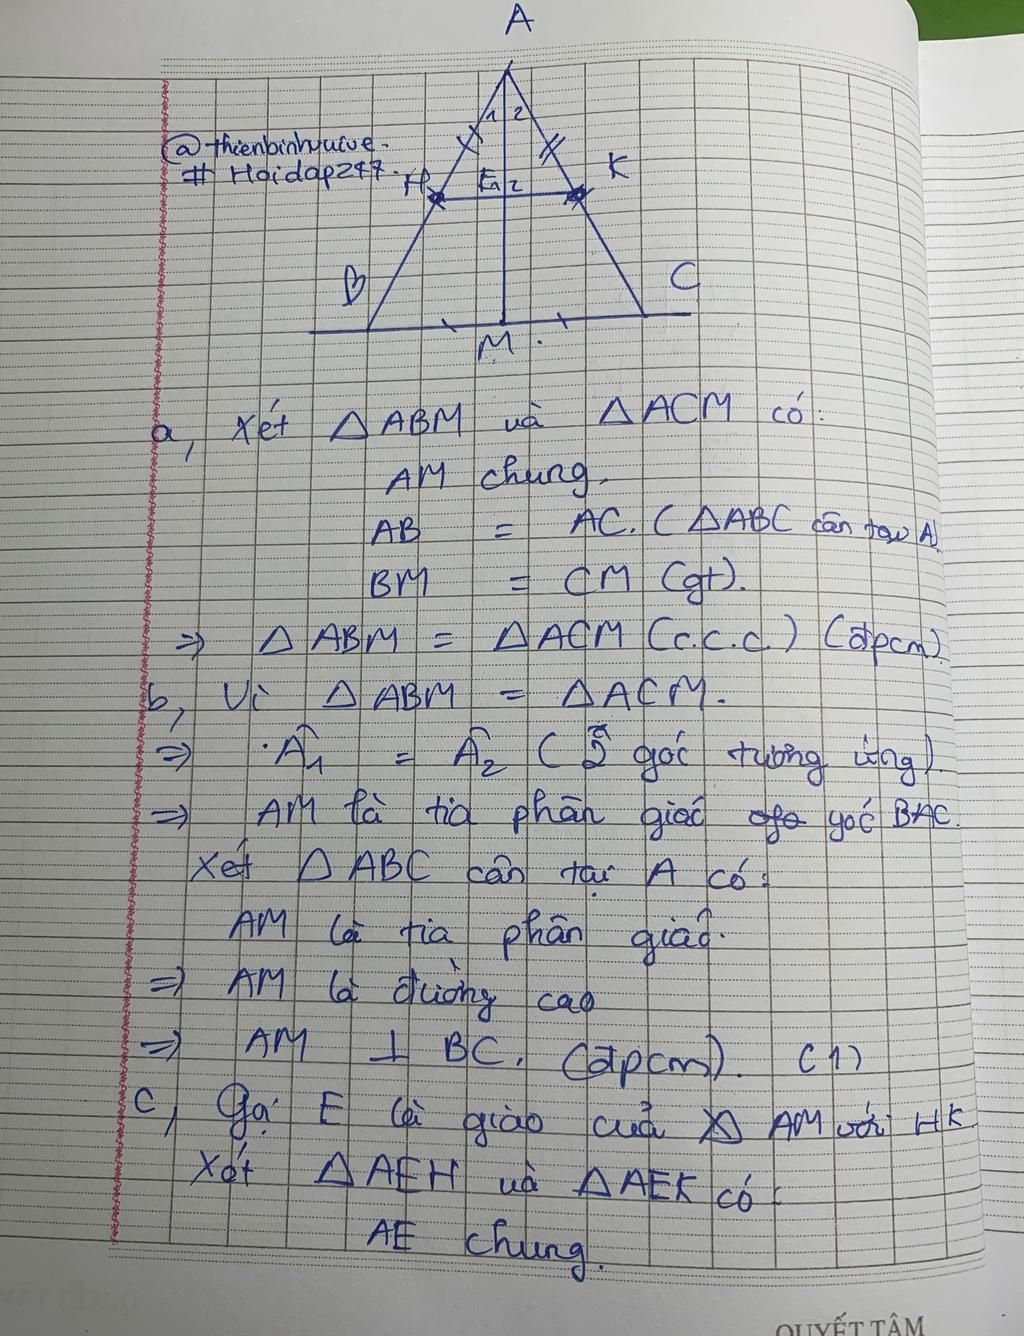 A
1 2
@thienbinhvuive.
# Hoidap247.
H
E1 2
K
B
C
M
a, Xét △ABM và △ACM có:
AM chung.
AB = AC. (△ABC cân tại A)
BM = CM (gt).
⇒ △ABM = △ACM (c.c.c) (đpcm)
b, Vì △ABM = △ACM.
⇒ Â1 = Â2 (2 góc tương ứng)
⇒ AM là tia phân giác góc BAC.
Xét △ABC cân tại A có:
AM là tia phân giác.
⇒ AM là đường cao
⇒ AM ⊥ BC. (đpcm). (1)
c, Gọi E là giao của AM với HK
Xét △AEH và △AEK có:
AE chung.
QUYẾT TÂM